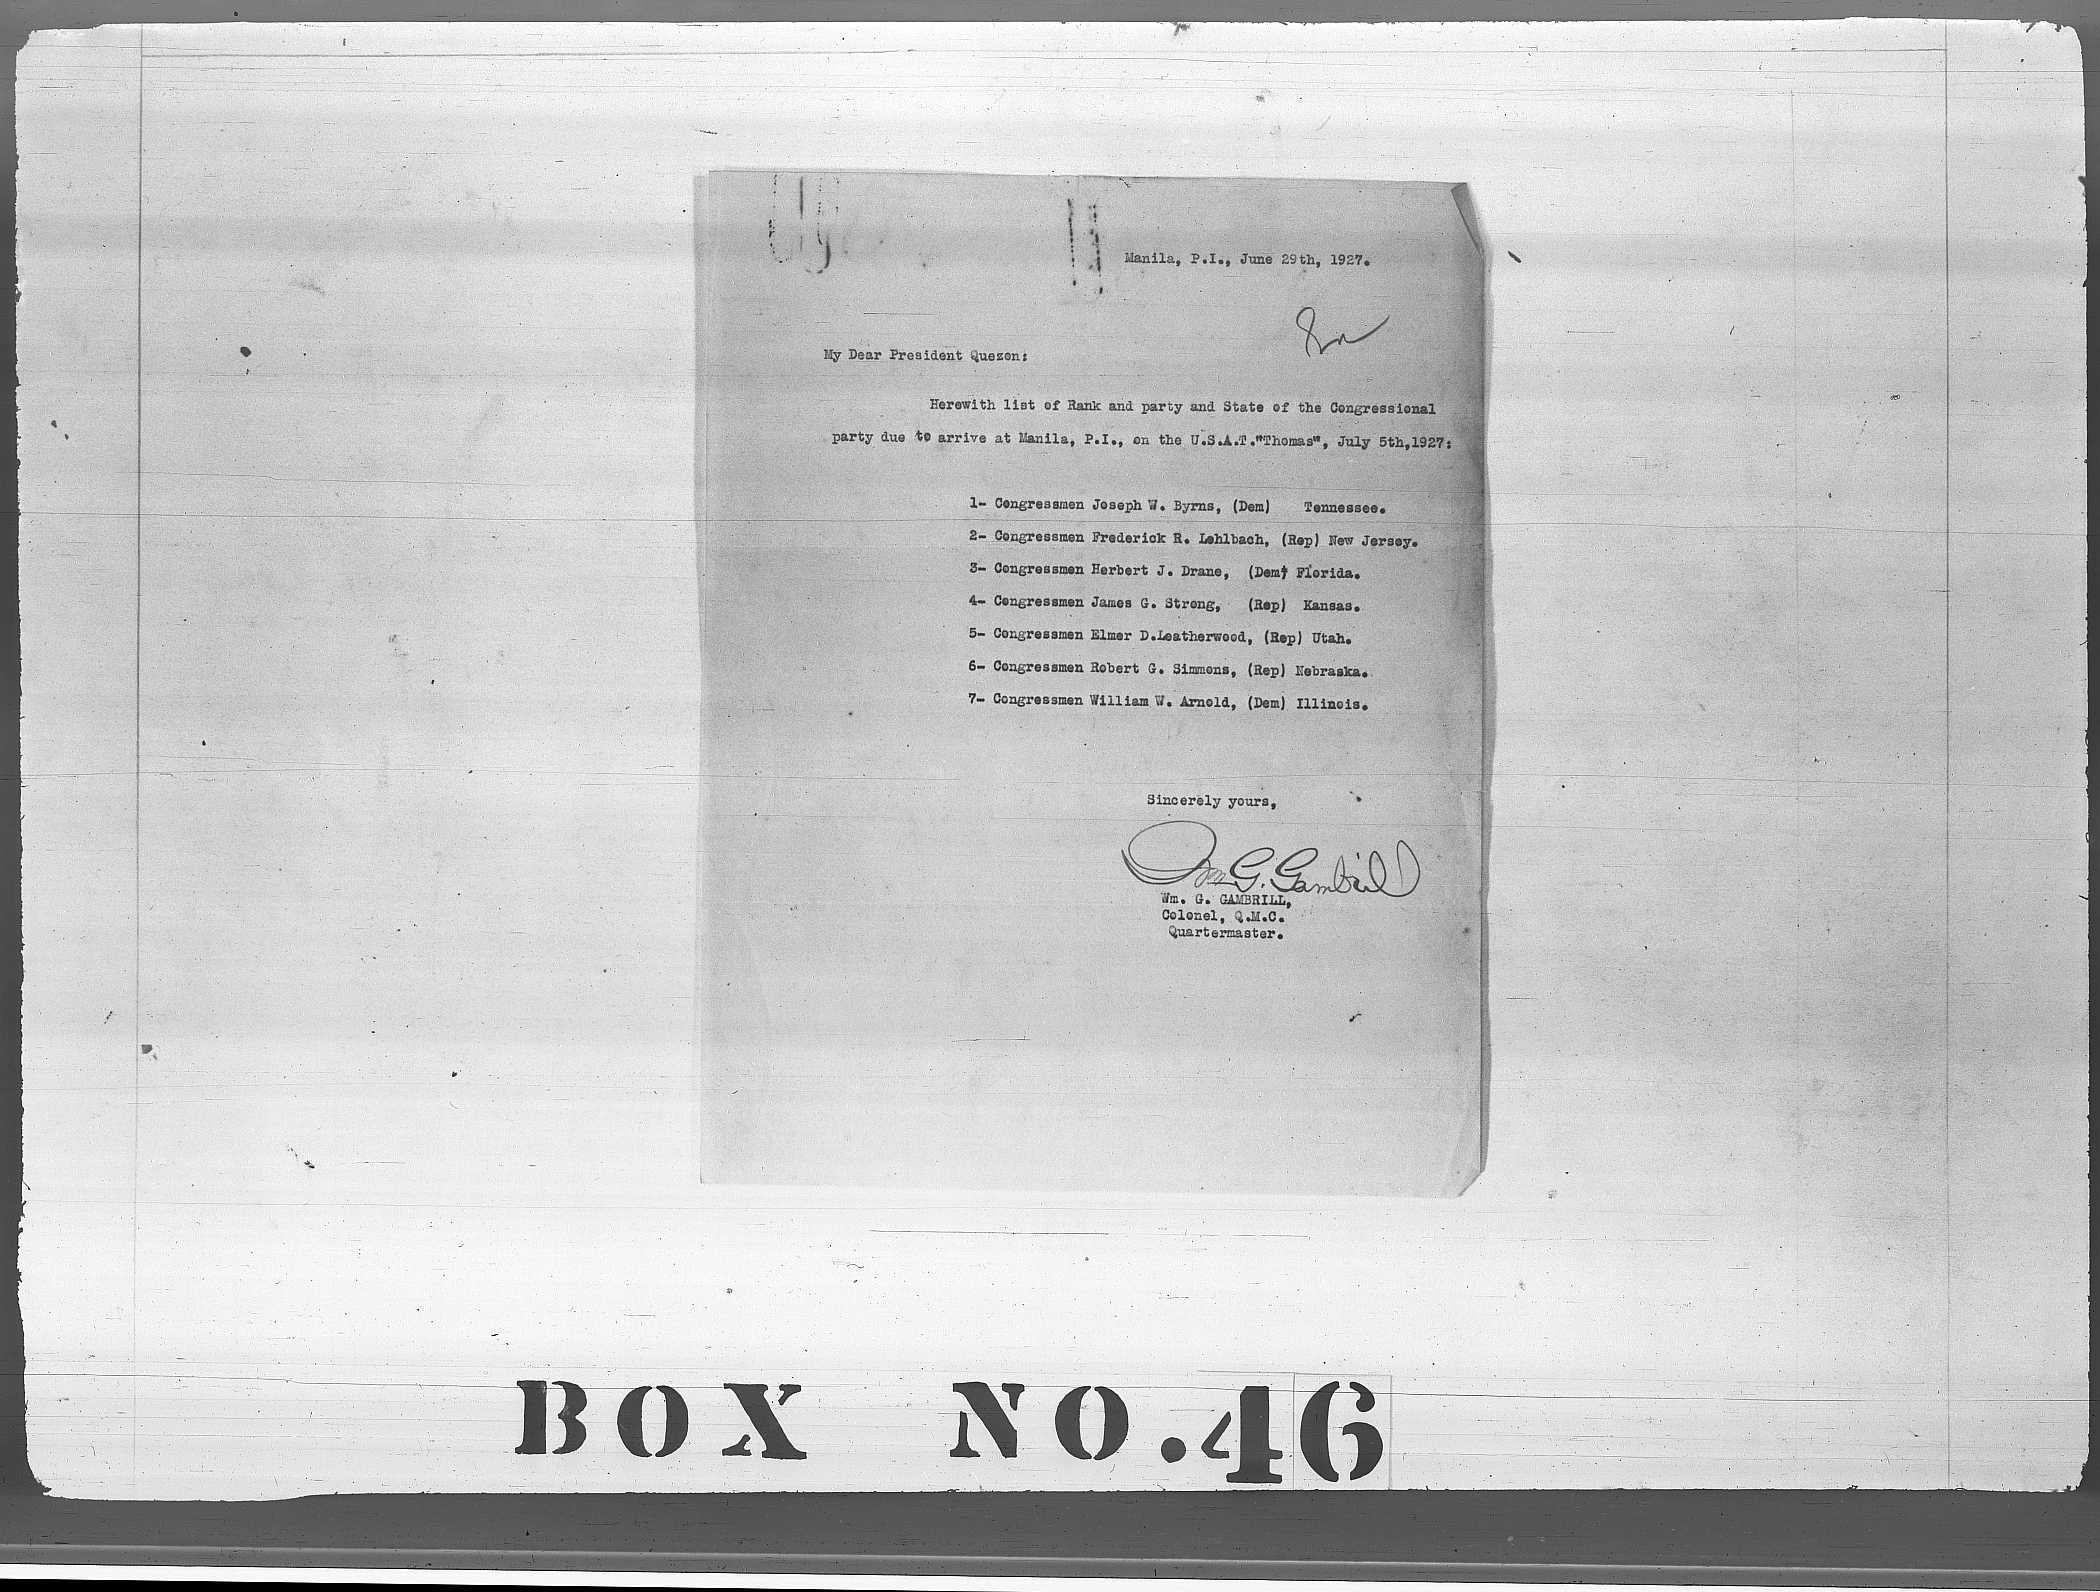 Manila, P.I., June 29th, 1927.
My Dear President Quezon:
Herewith list of Rank and party and State of the Congressional
party due to arrive at Manila, P.I., on the U.S.A.T."Thomas", July 5th,1927:
1- Congressmen Joseph W. Byrns, (Dem) Tennessee.
2- Congressmen Frederick R. Lehlbach, (Rep) New Jersey.
3- Congressmen Herbert J. Drane, (Dem) Florida.
4- Congressmen James G. Strong, (Rep) Kansas.
5- Congressmen Elmer D.Leatherwood, (Rep) Utah.
6- Congressmen Robert G. Simmons, (Rep) Nebraska.
7- Congressmen William W. Arnold, (Dem) Illinois.
Sincerely yours,
Wm G. Gambrill
Wm. G. GAMBRILL,
Colonel, Q.M.C.
Quartermaster.
BOX NO.46